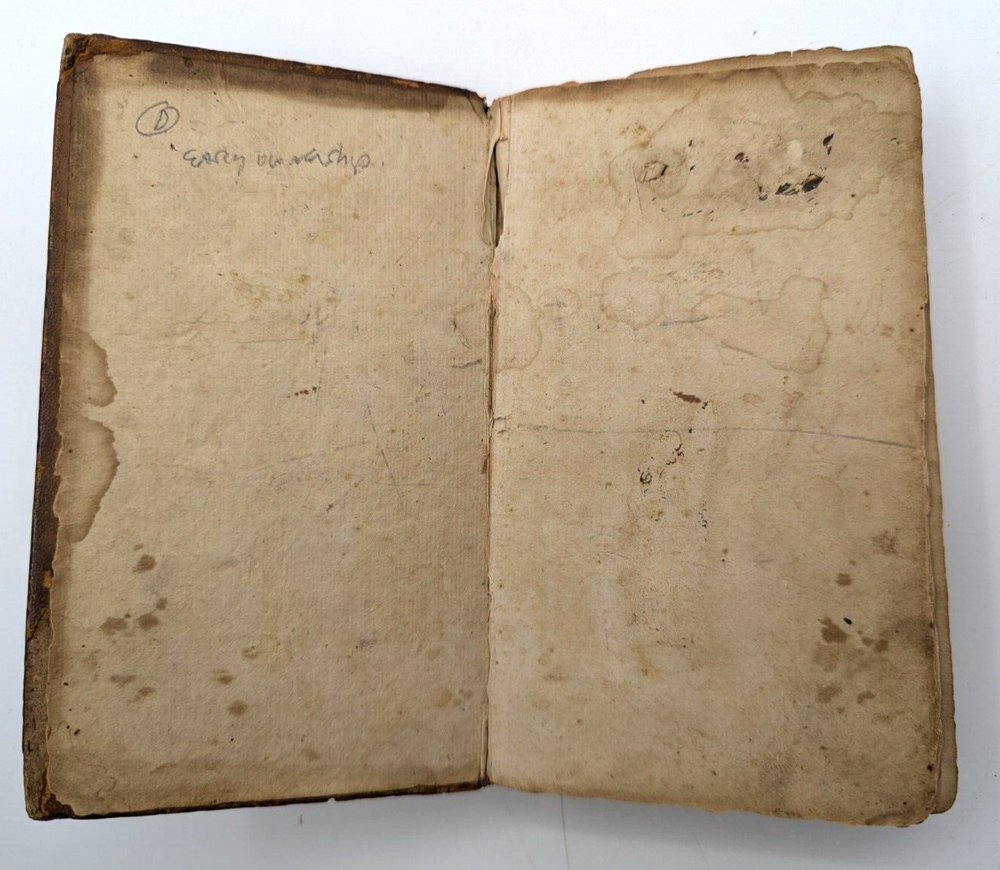 ①
Early ownership.